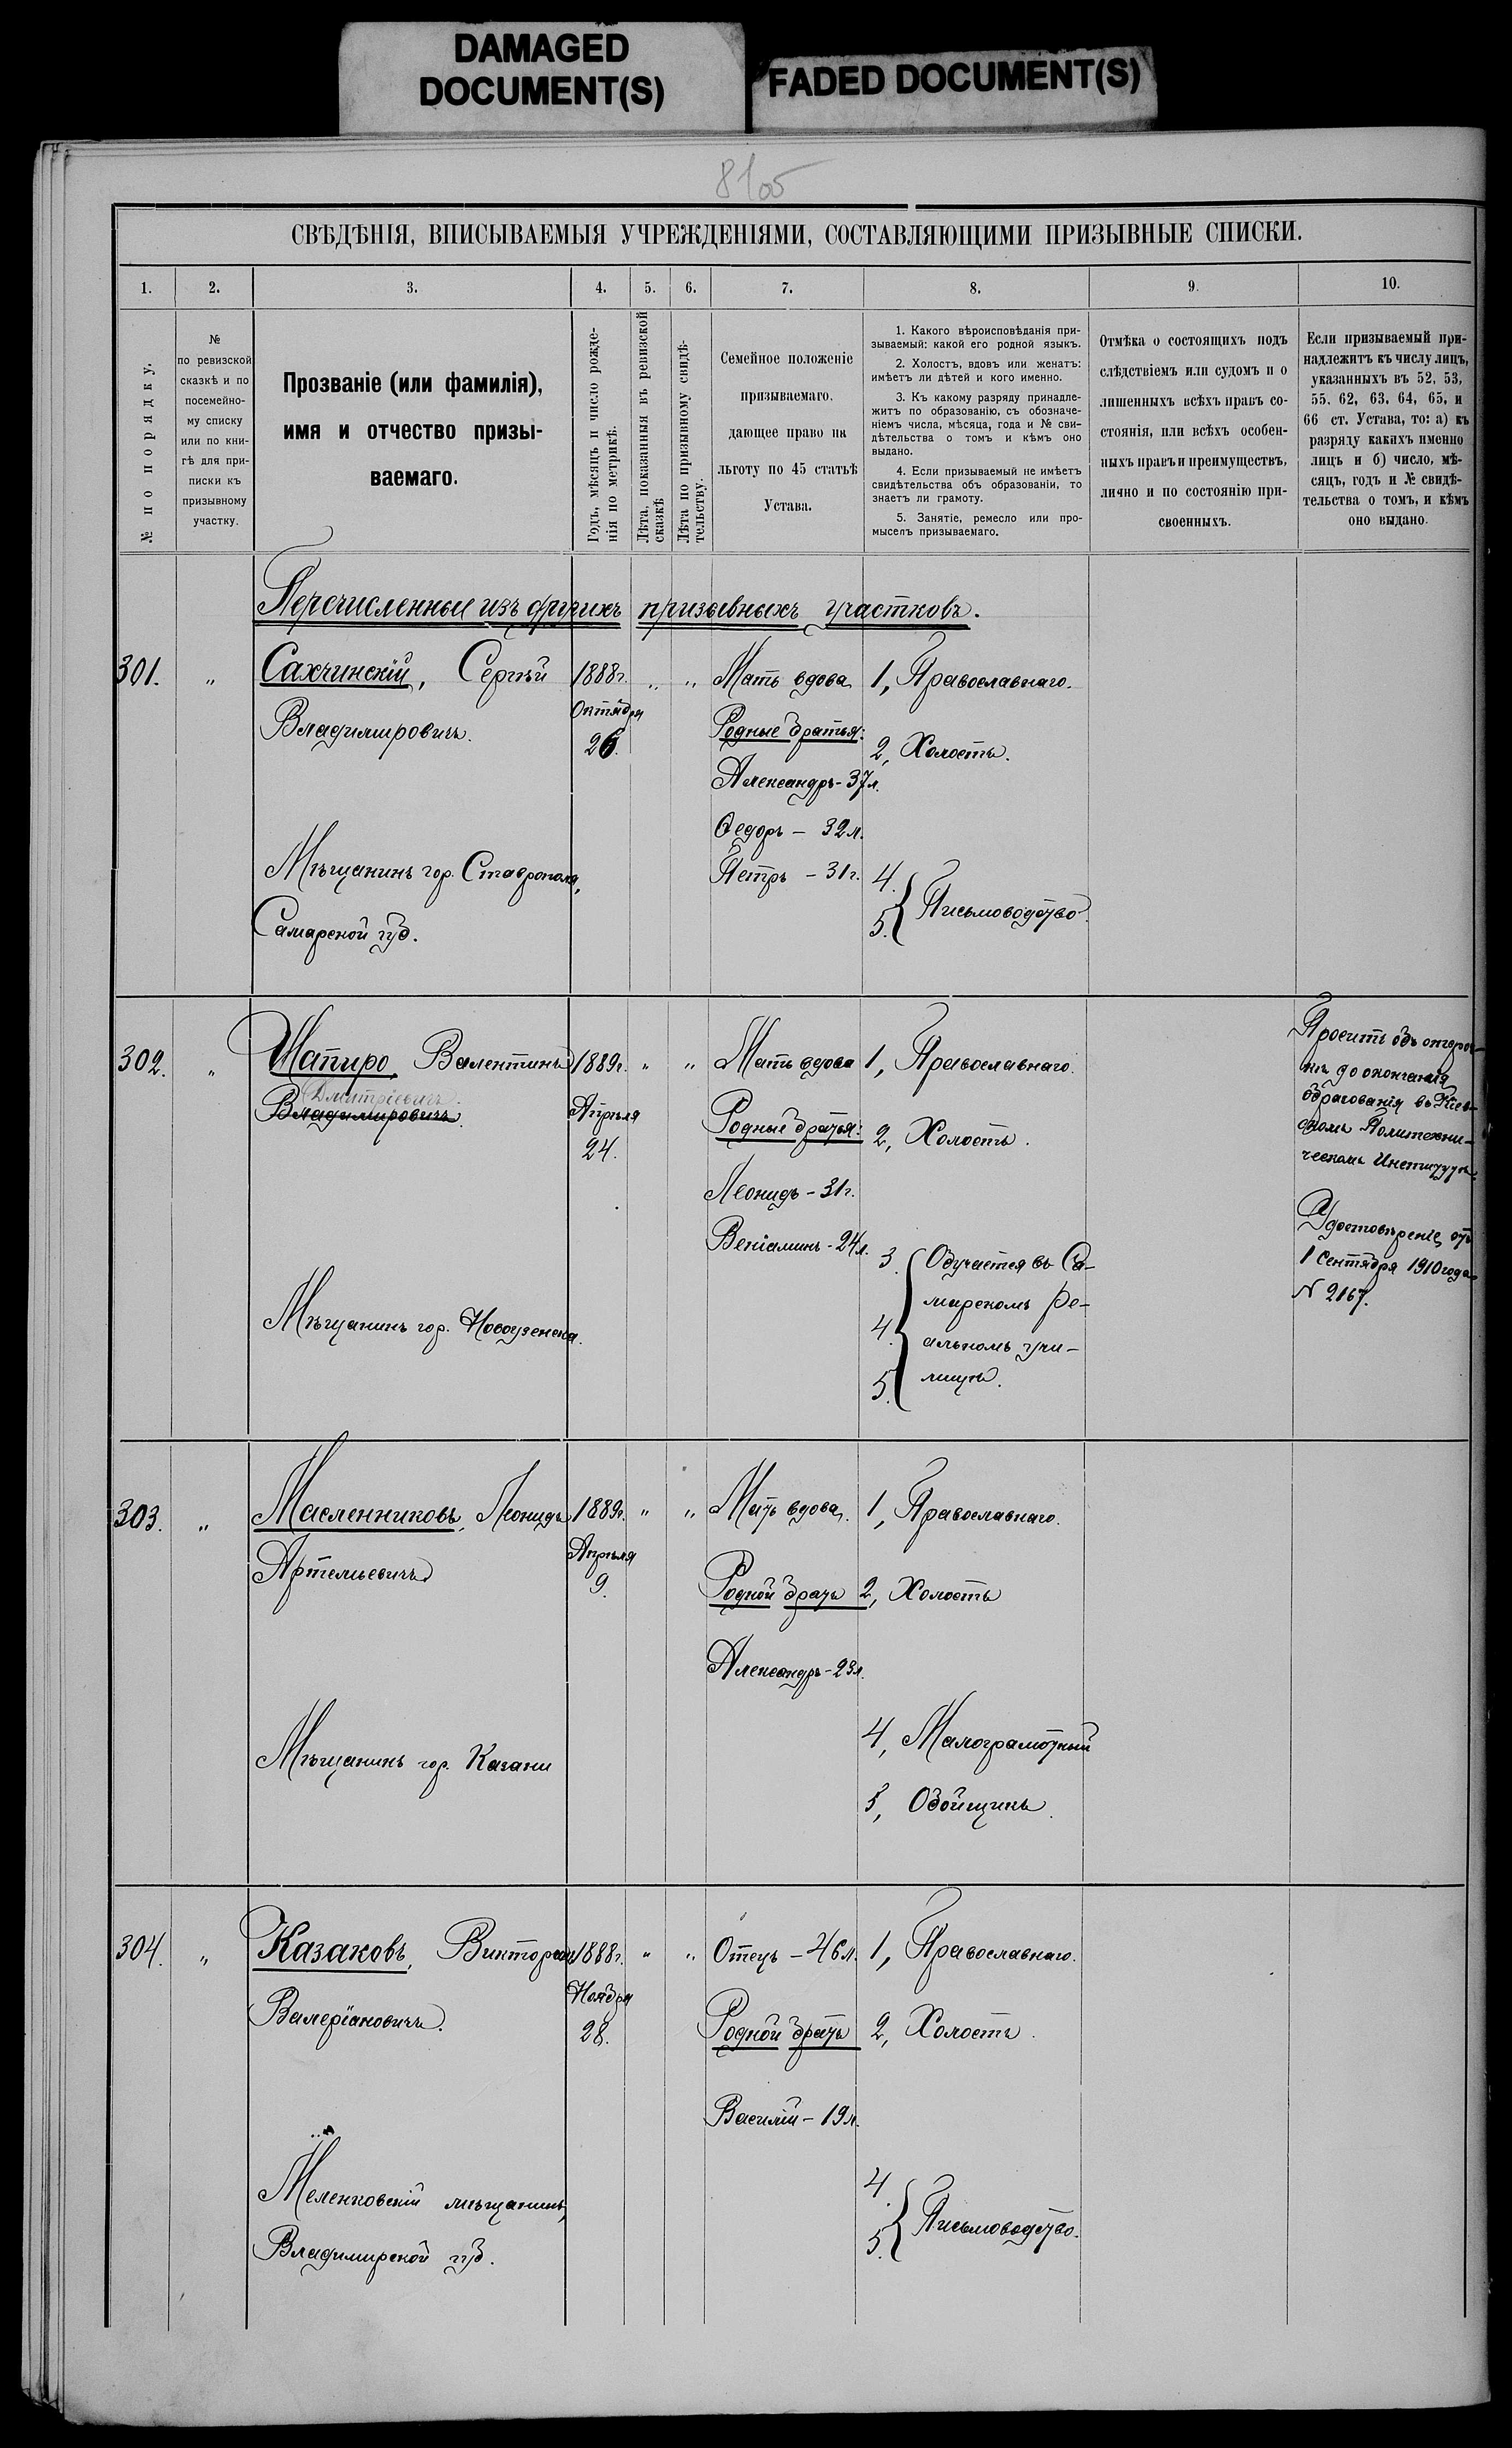 DAMAGED
DOCUMENT(S)
FADED DOCUMENT(S)
81
СВѢДѢНІЯ, ВПИСЫВАЕМЫЯ УЧРЕЖДЕНІЯМИ, СОСТАВЛЯЮЩИМИ ПРИЗЫВНЫЕ СПИСКИ.
1.
2.
3.
4.
5.
6.
7.
8.
9.
10.
№ по порядку.
№
по ревизской
сказкѣ и по
посемейно-
му списку
или по кни-
гѣ для при-
писки къ
призывному
участку.
Прозваніе (или фамилія),
имя и отчество призы-
ваемаго.
Годъ, мѣсяцъ и число рожде-
нія по метрикѣ.
Лѣта, показанныя въ ревизской
сказкѣ
Лѣта по призывному свидѣ-
тельству.
Семейное положеніе
призываемаго,
дающее право на
льготу по 45 статьѣ
Устава.
1. Какого вѣроисповѣданія при-
зываемый: какой его родной языкъ.
2. Холостъ, вдовъ или женатъ:
имѣетъ ли дѣтей и кого именно.
3. Къ какому разряду принадле-
житъ по образованію, съ обозначе-
ніемъ числа, мѣсяца, года и № сви-
дѣтельства о томъ и кѣмъ оно
выдано.
4. Если призываемый не имѣетъ
свидѣтельства объ образованіи, то
знаетъ ли грамоту.
5. Занятіе, ремесло или про-
мыселъ призываемаго.
Отмѣка о состоящихъ подъ
слѣдствіемъ или судомъ и о
лишенныхъ всѣхъ правъ со-
стоянія, или всѣхъ особен-
ныхъ правъ и преимуществъ,
лично и по состоянію при-
своенныхъ.
Если призываемый при-
надлежитъ къ числу лицъ,
указанныхъ въ 52, 53,
55. 62, 63, 64, 65, и
66 ст. Устава, то: а) къ
разряду какихъ именно
лицъ и б) число, мѣ-
сяцъ, годъ и № свидѣ-
тельства о томъ, и кѣмъ
оно выдано.
Перечисленные изъ другихъ призывныхъ участковъ.
301.
"
Сахчинскій, Сергѣй
Владимировичъ.
Мѣщанинъ гор. Ставрополя,
Самарской губ.
1888г.
Октября
26.
"
"
Мать вдова
Родные братья:
Александръ - 37л.
Федоръ - 32л.
Петръ - 31г.
1, Православнаго.
2, Холостъ.
4.
5.
Письмоводство.
302.
"
Шапиро, Валентинъ
Дмитріевичъ.
Владимировичъ.
Мѣщанинъ гор. Новоузенска.
1889г.
Апрѣля
24.
"
"
Мать вдова
Родные братья:
Леонидъ - 31г.
Веніаминъ - 24л.
1, Православнаго.
2, Холостъ.
3.
4.
5.
Обучается въ Са-
марскомъ ре-
альномъ учи-
лищѣ.
Проситъ объ отсроч-
кѣ до окончанія
образованія въ Кіев-
скомъ Политехни-
ческомъ Институтѣ.
Удостовѣреніе отъ
1 Сентября 1910 года
N 2167.
303.
"
Масленниковъ, Леонидъ
Артемьевичъ
Мѣщанинъ гор. Казани
1889г.
Апрѣля
9.
"
"
Мать вдова.
Родной братъ
Александръ - 23л.
1, Православнаго.
2, Холостъ
4, Малограмотный
5, Обойщикъ.
304.
"
Казаковъ, Викторъ
Валеріановичъ.
Меленковскій мѣщанинъ,
Владимирской губ.
1888г.
Ноября
28.
"
"
Отецъ - 46л.
Родной братъ
Василій - 19л.
1, Православнаго.
2, Холостъ.
4.
5.
Письмоводство.